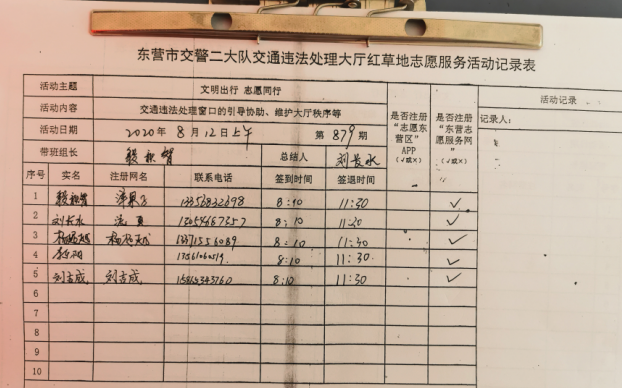 东营市交警二大队交通违法处理大厅红草地志愿服务活动记录表
活动主题 文明出行 志愿同行
活动内容 交通违法处理窗口的引导协助、维护大厅秩序等
活动日期 2020年8月12日上午 第879期
带班组长 总结人 刘长水
序号 实名 注册网名 联系电话 签到时间 签退时间
是否注册
“志愿东
营区”
APP
(√或×)
是否注册
“东营志
愿服务网
”
(√或×)
活动记录
记录人:
1 13356832698 8:10 11:30 √
2 刘长水 13054667257 8:10 11:20 √
3 13371556089 8:10 11:30 √
4 8:10 11:30 √
5 刘吉成 刘吉成 15815343760 8:10 11:30 √
6
7
8
9
10